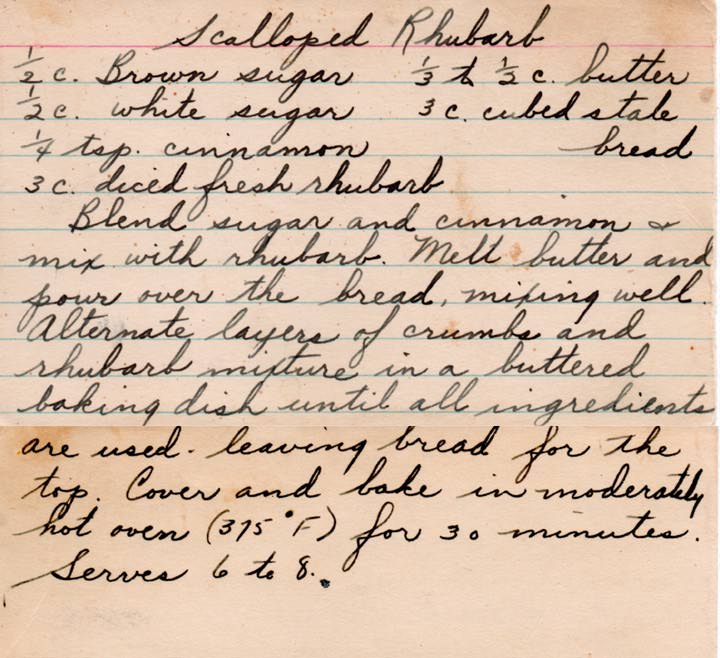 Scalloped Rhubarb
1/2 c. Brown sugar 1/3 to 1/2 c. butter
1/2 c. white sugar 3 c. cubed stale
1/4 tsp. cinnamon bread
3 c. diced fresh rhubarb
Blend sugar and cinnamon &
mix with rhubarb. Melt butter and
pour over the bread, mixing well.
Alternate layers of crumbs and
rhubarb mixture in a buttered
baking dish until all ingredients
are used. leaving bread for the
top. Cover and bake in moderately
hot oven (375°F) for 30 minutes.
Serves 6 to 8.